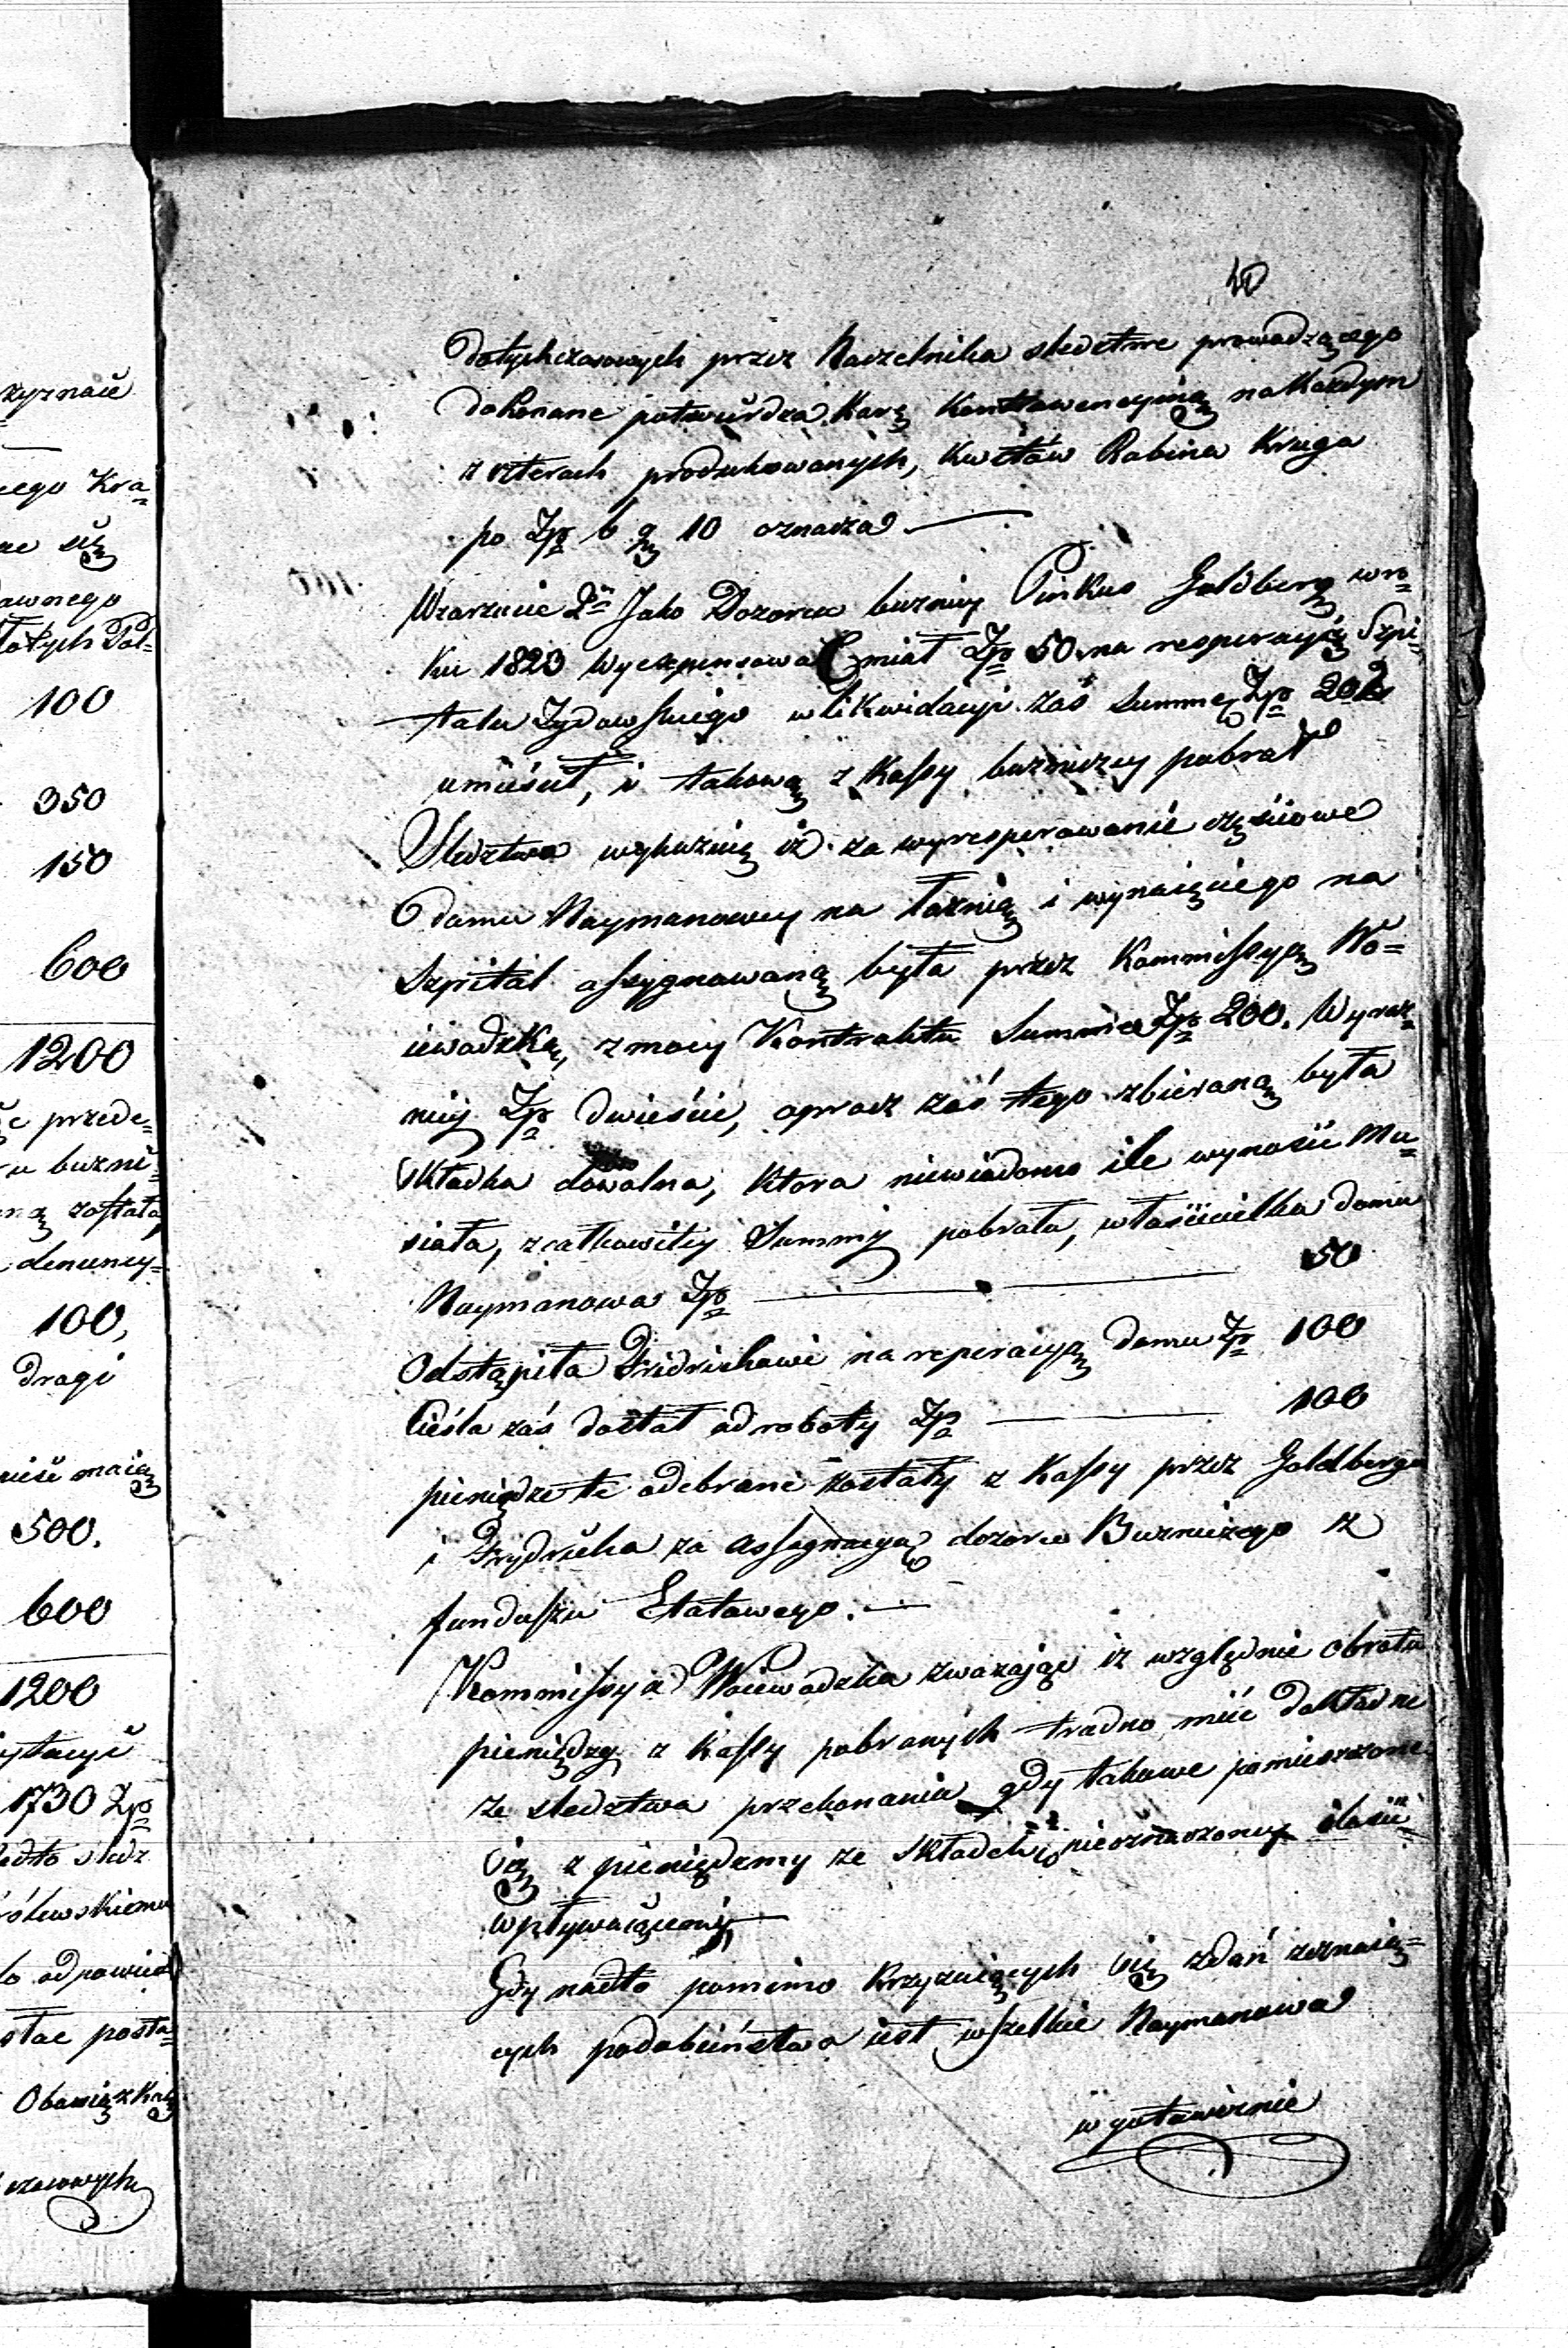 40
zyznaie
cego Kra=
ac się
awnego
Złotych Pol=
100
350
150
600
1200
że przede=
u bużni=
ną została
denuncy=
100,
dragi
nieść maią
500.
600
1200
ystacyi
1730 Zp
śledz
rólewskiemu
to odpowied
stac posta=
Obowiązkał
czasowych
Dotychczasowych przez Naczelnika sledztwo prowadzącego
dokonane potwierdza, Karę Kontrawencyiną na Każdym
z czterech produkowanych, Kwitów Rabina Kruga
po Zp 6 gr 10 oznacza —
Wzarzucie 2m Jako Dozorca bużnicy Pinkus Goldberg wro=
ku 1823 wyexpensował miał Zp 50 na resperacyię Szpi=
talu Zydowskiego w likwidacyi zaś Summę Zp 202
umieścił, i takową z Kassy bużniczey pobrał
Sledztwo wykaznię iż za wyresperowanie częsciowe
domu Naymanowey na łaznią i wynaięciego na
Szpital assygnowaną była przez Kommissyą Wo=
iewodzką, z mocy Kontraktu Summa Zp 200. Wyraz=
niey Zp dwieście, oprocz zaś tego zbieraną była
Składka dowolna, ktora niewiadomo ile wynosić Mu=
siała, z całkowitey Summy pobrała, własicielka domu
Naymanowa Zp — 50
Odstąpiła Fridrichowi na reperacyą domu Zp 100
Cieśla zaś dostał od roboty Zp — 100
pieniądze te odebrane zostały z Kassy przez Goldberga
i Frydricha za assygnacyą dozoru Bużniczego z
funduszu Etatowego. —
Kommissya Woiewodzka zważając iż względnie obrotu
pieniędzy z Kassy pobranych trudno mieć dokładne
ze sledztwa przekonania gdy takowe pomieszczone
są z pieniędzmy ze składek, nieoznaczoney ilości
wpływaiącemi —
Gdy nadto pomimo Krzyżuiących się zdań zeznaią=
cych podobieństwo iest wszelkie Naymanowa
w gotowiznie